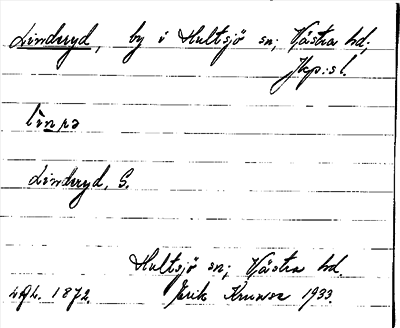 Lindryd, by i Hultsjö sn; Västra hd,
Jkp:s l.
Lindryd, S.
Hultsjö sn; Västra hd.
1872. Erik 1933.